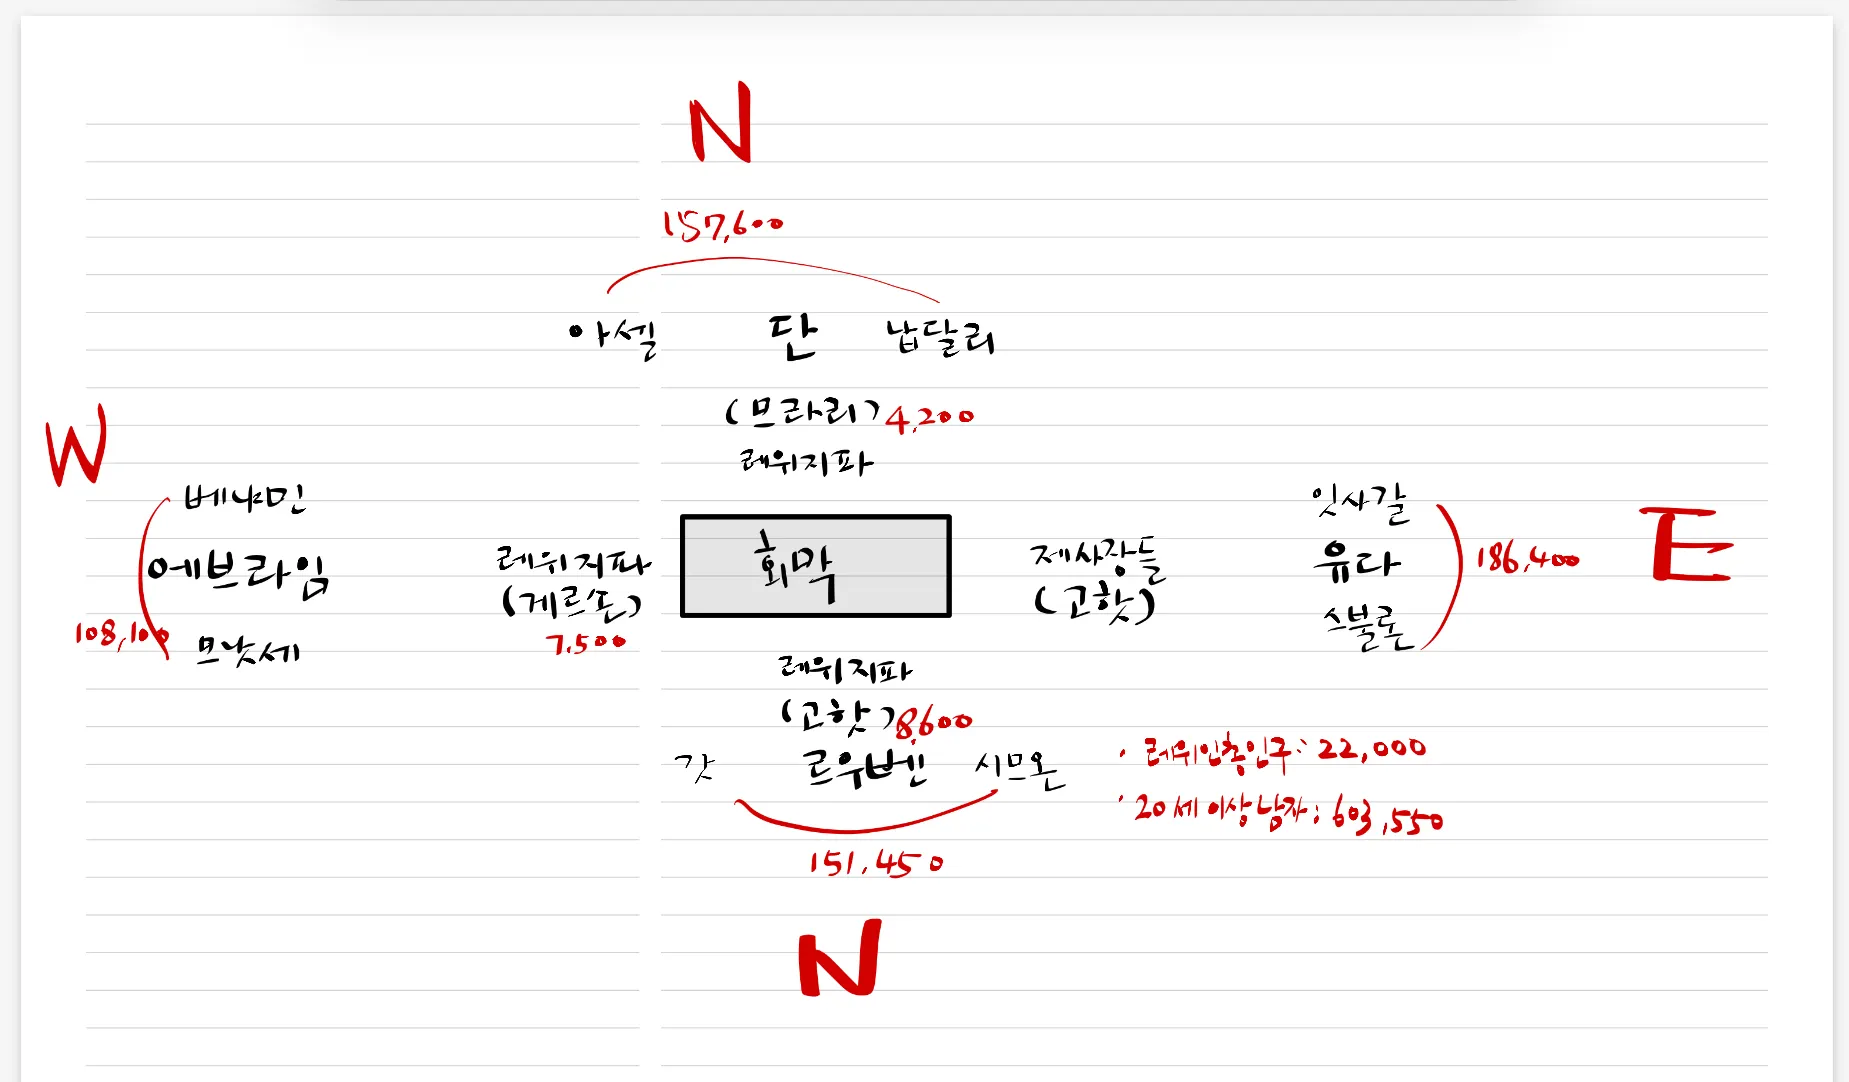 N
157,600
아셀 단 납달리
(므라리) 4,200
레위지파
W
베냐민
에브라임
므낫세
108,100
레위지파
(게르손)
7,500
회막
제사장들
(고핫)
잇사갈
유다
스불론
186,400
E
레위지파
(고핫) 8,600
갓 르우벤 시므온
151,450
· 레위인총인구: 22,000
· 20세 이상 남자: 603,550
N